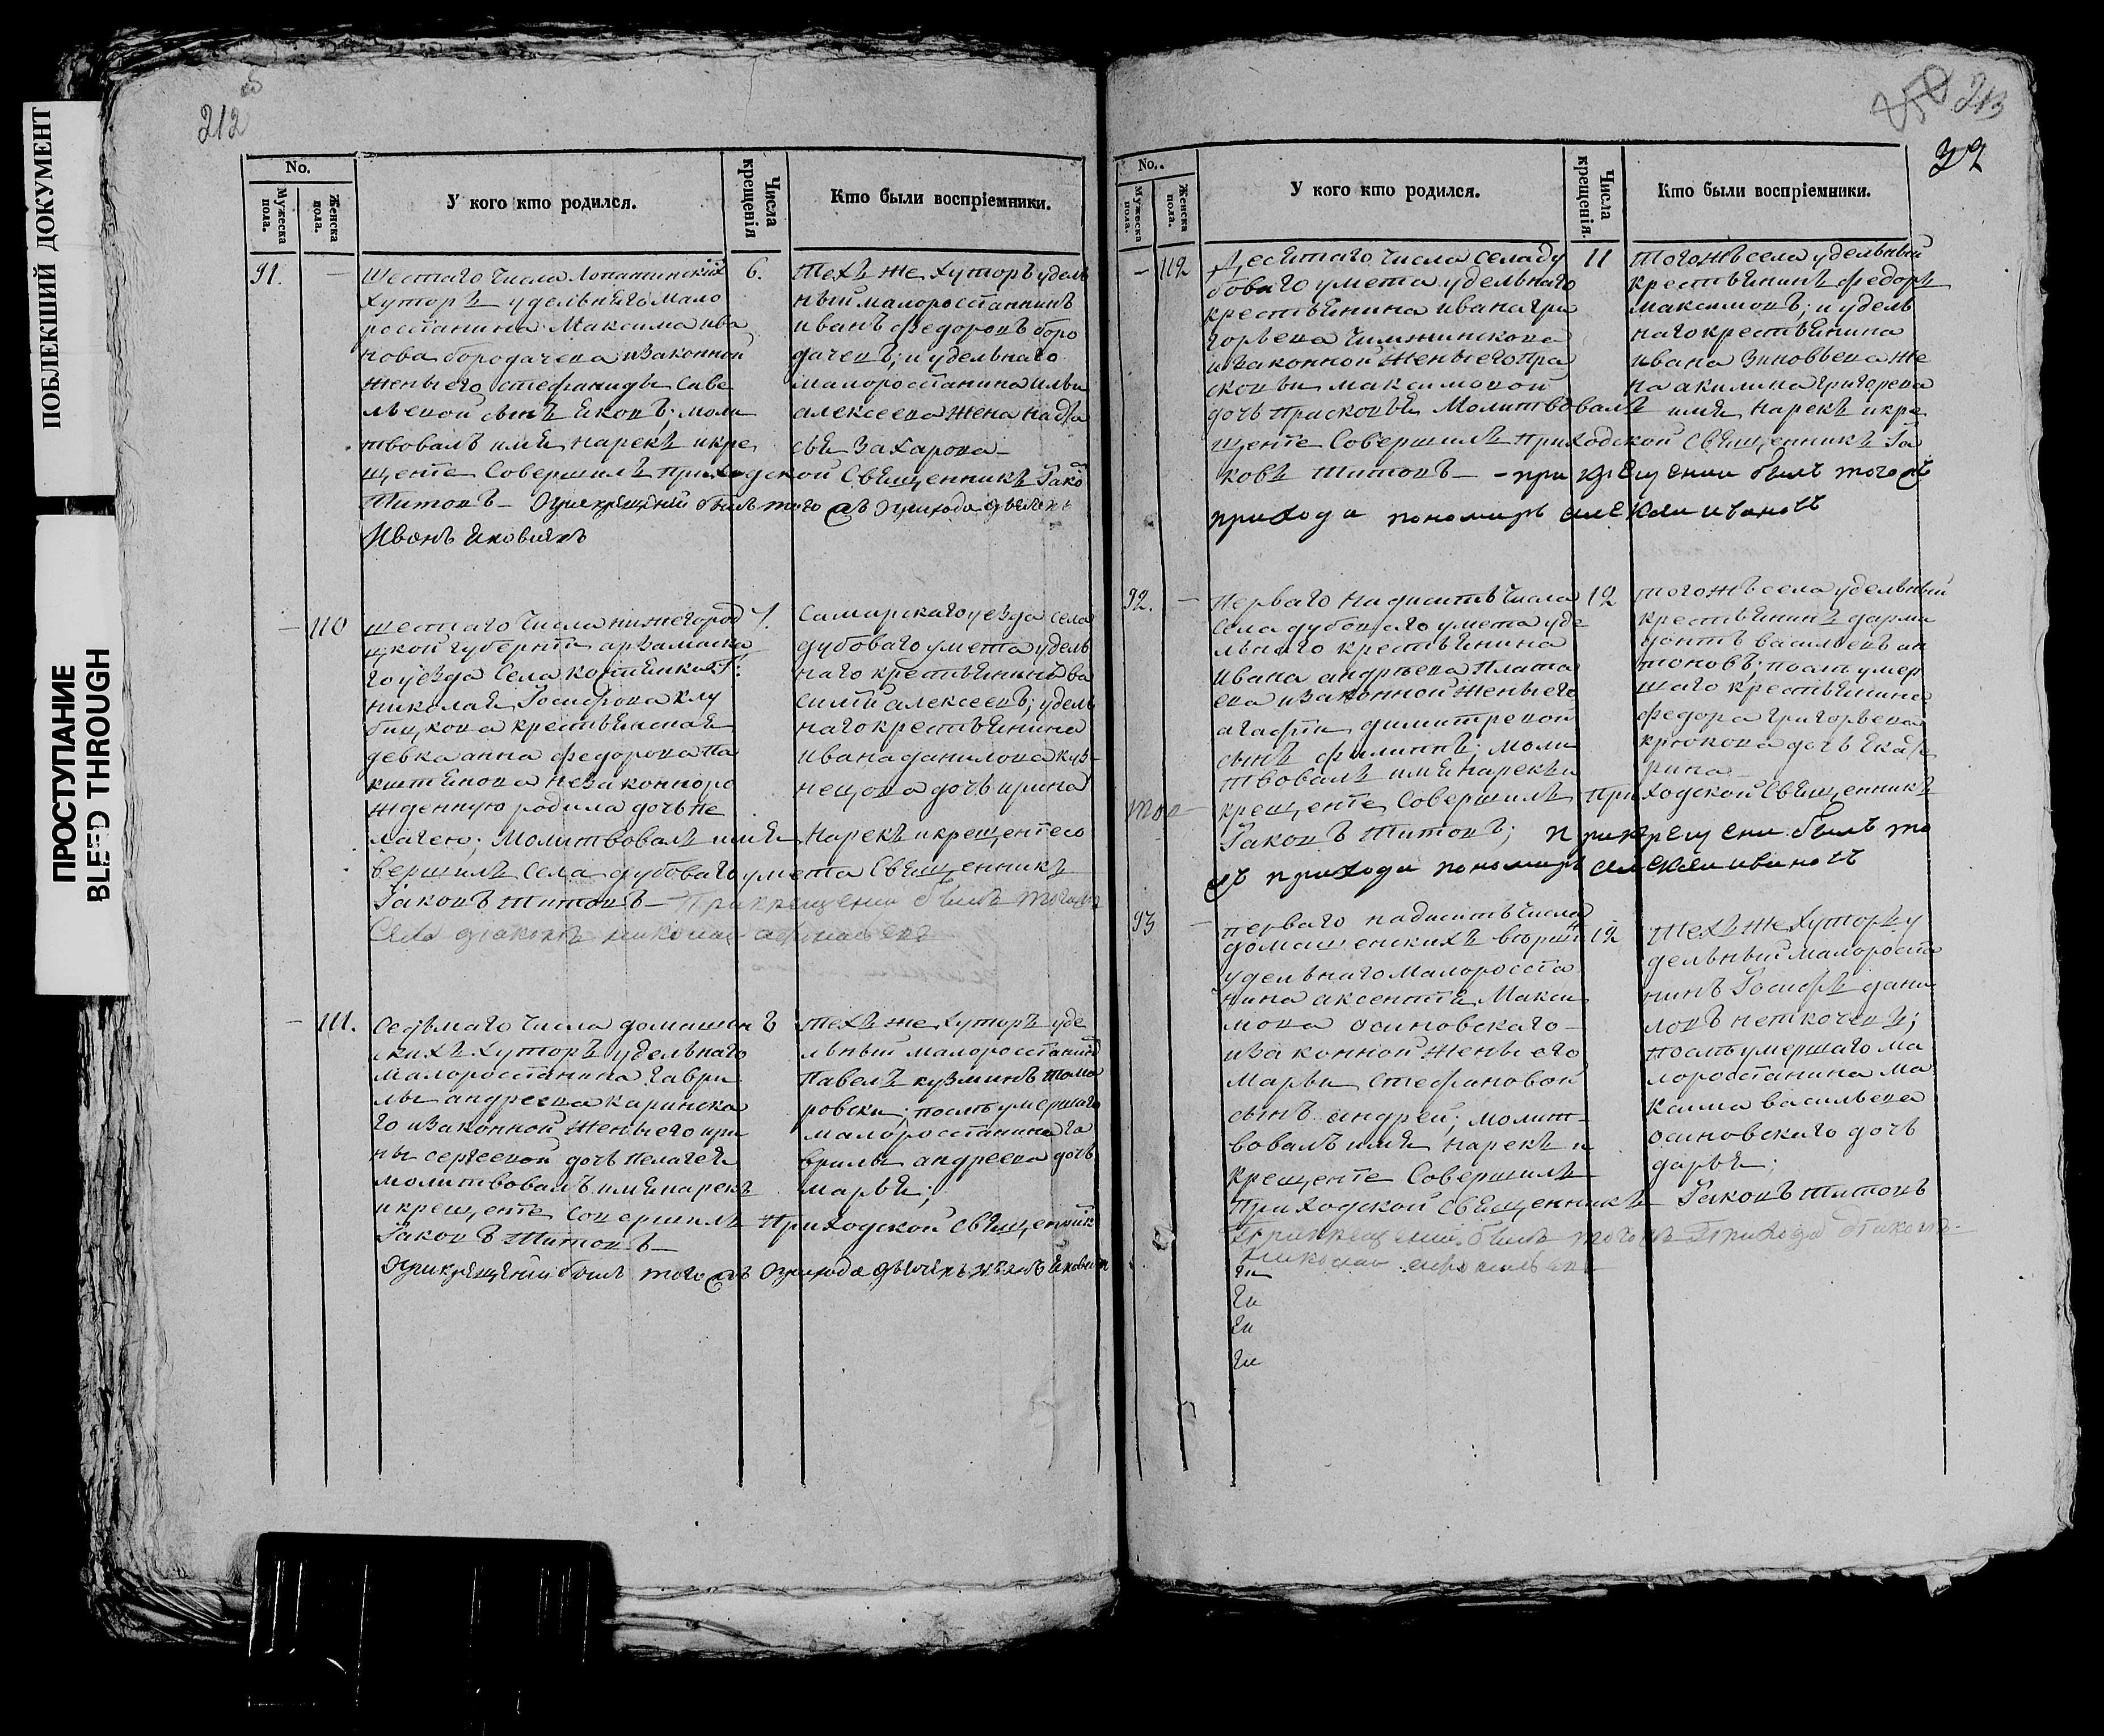 ПОБЛЕКШИЙ ДОКУМЕНТ
ПРОСТУПАНИЕ
BLEED THROUGH
212
No.
Мужеска пола.
Женска пола.
У кого кто родился.
Числа крещенія
Кто были воспріемники.
91.
—
Шестаго числа Лопатинских
хуторъ удельнаго мало
россіанина Максима ива
нова бородачева и законной
жены его стефаниды саве
льевой сынъ Яковъ; моли
твовалъ имя нарекъ и кре
щеніе Совершилъ приходской Священникъ Іако
Титовъ — при крещеніи былъ того жъ прихода дьячекъ
Иванъ Яковлевъ
6.
техъ же хуторъ удель
ный малороссіанинъ
иванъ федоровъ боро
дачевъ; и удельнаго
малороссіанина ильи
алексеева жена
Захарова —
— 110
шестаго числа нижегород
цкой губерніи арзамаска
го уезда Села
николая Іосифова клу
бицкова крестьянская
девка анна федорова па
незаконноро
жденную родила дочь пе
лагею; Молитвовалъ имя нарекъ и крещеніе со
вершилъ села дубоваго умета Священникъ
Іаковъ Титовъ — При крещеніи былъ того жъ
Села діаконъ николай
7.
Самарскаго уезда села
дубоваго умета удель
наго крестьянина ва
силій алексеевъ; удель
наго крестьянина
ивана данилова куз-
нецова дочь ирина
— 111.
Седьмаго числа домашен
скихъ хуторъ удельнаго
малороссіанина гаври
лы андреева каринска
го и законной жены его ири
ны сергеевой дочь пелагея
молитвовалъ имя нарекъ
и крещеніе совершилъ приходской священникъ
Іаковъ Титовъ —
При крещеніи былъ того жъ прихода дьячекъ иванъ Яковлевъ
техъ же хуторъ уде
льный малороссіанинъ
Павелъ кузминъ тома
ровски; послъ умершаго
малороссіанина га
врилы андреева дочь
марья;
213
32
No..
Мужеска пола.
Женска пола.
У кого кто родился.
Числа крещенія.
Кто были воспріемники.
— 112
Десятаго числа села ду
боваго умета удельнаго
крестьянина ивана гри
горьева
и законной жены его пра
сковьи максимовой
дочь Прасковья Молитвовалъ имя нарекъ и кре
щеніе Совершилъ приходской Священникъ Іа
ковъ Титовъ — — при крещении былъ того жъ
прихода пономарь алексеи ивановъ
11
того жъ села удельный
крестьянинъ федоръ
максимовъ; и удель
наго крестьянина
ивана Зиновьева же
на акилина григорева
92. —
Перваго надцать числа
села дубоваго умета уде
льнаго крестьянина
ивана андреева Плата
ева и законной жены его
агафіи димитревой
сынъ филиппъ; моли
твовалъ имя нарекъ и
крещеніе Совершилъ приходской Священникъ
Іаковъ Титовъ; при крещении былъ то
жъ прихода пономарь алексеи ивановъ
12
того жъ села удельный
крестьянинъ дорми
донтъ васильевъ ан
тоновъ; послъ умер
шаго крестьянина
федора григорьева
крюкова дочь екате
рина —
93 —
перваго надцать числа
домашенскихъ хуторъ
удельнаго малороссіа
нина аксентія Макси
мова осиновскаго —
и законной жены его
Марьи стефановой
сынъ андрей; молит-
вовалъ имя нарекъ и
крещеніе Совершилъ
приходской священникъ Іаковъ Титовъ
При крещеніи былъ того жъ прихода діаконъ
николай
12
техъ же хуторъ у
дельный малороссіа
нинъ Іосифъ дани
ловъ неткочевъ;
послъ умершаго ма
лороссіанина ма
ксима васильева
осиновскаго дочь
дарья;